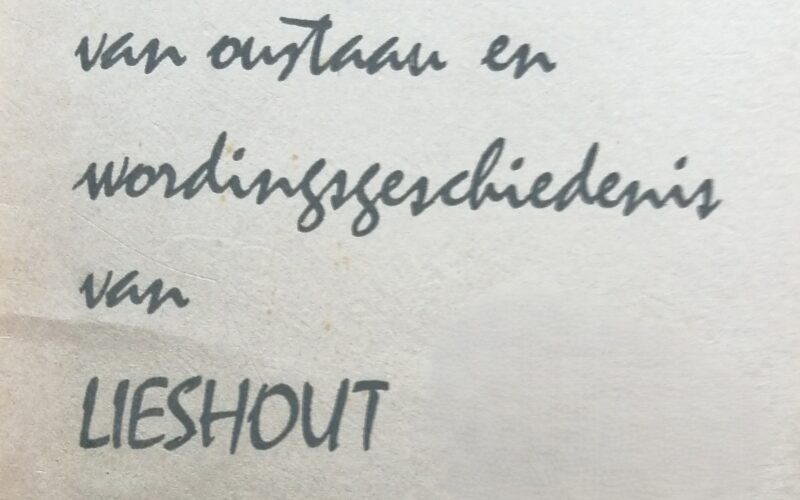 van oustaau en
wordingsgeschiedenis
van
LIESHOUT